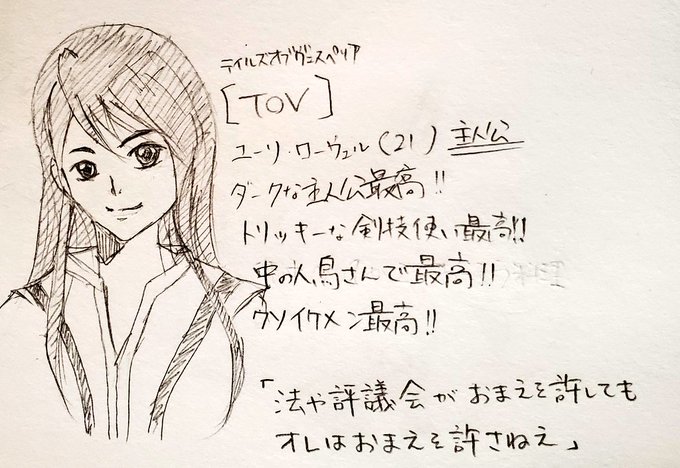 テイルズオブヴェスペリア
[TOV]
ユーリ・ローウェル(21) 主人公
ダークな主人公最高!!
トリッキーな剣技使い最高!!
中の人鳥さんで最高!!
クソイケメン最高!!
「法や評議会がおまえを許しても
オレはおまえを許さねえ」